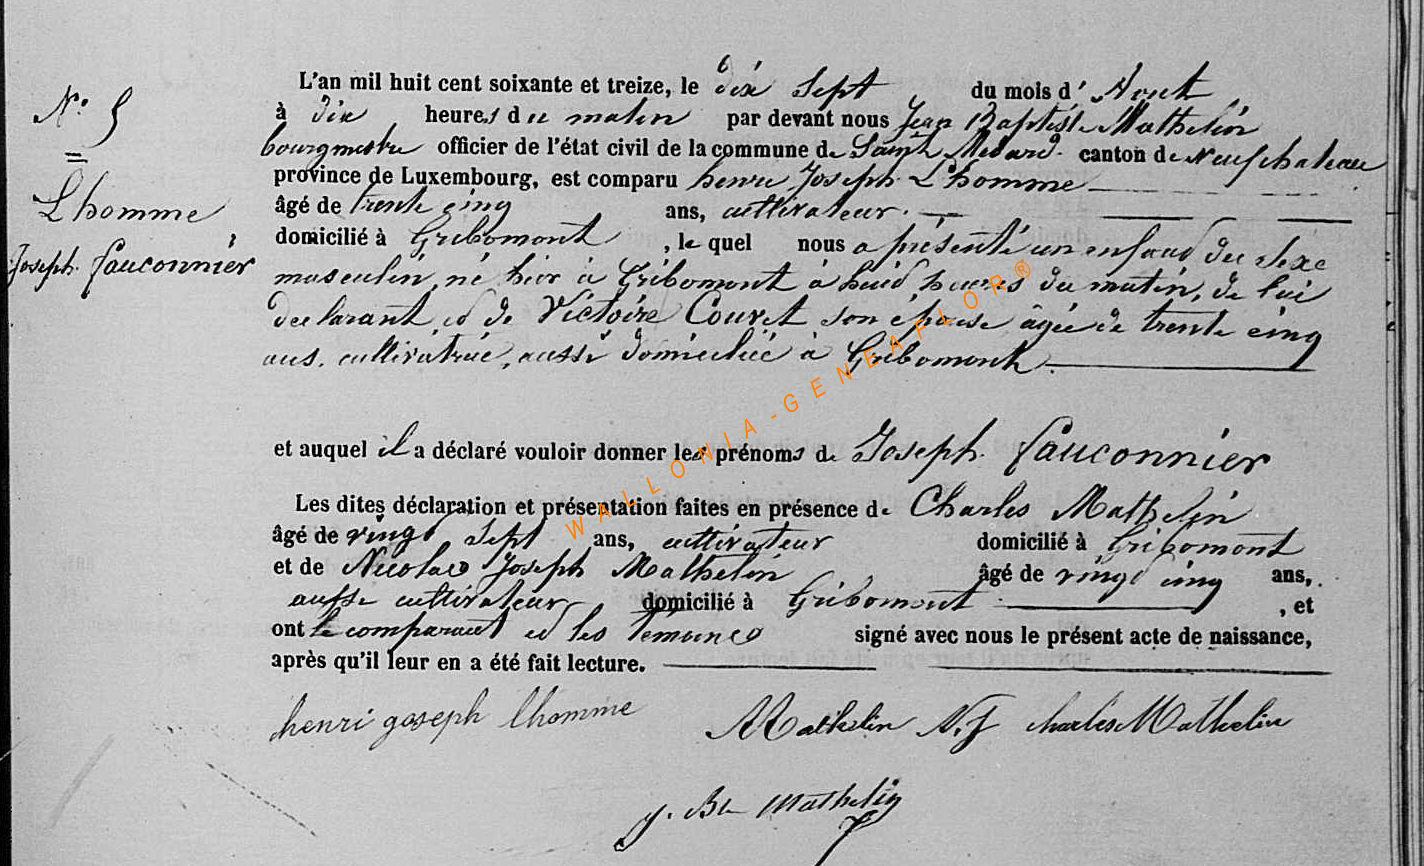 N° 5
Lhomme
Joseph Fauconnier
L'an mil huit cent soixante et treize, le dix sept du mois d' Aout
à dix heures du matin par devant nous Jean Baptiste Mathelin
bourgmestre officier de l'état civil de la commune de Saint Medard canton de Neufchateau
province de Luxembourg, est comparu henri Joseph Lhomme
âgé de trente cinq ans, cultivateur
domicilié à Gribomont, le quel nous a présenté un enfant du sexe
masculin, né hier à Gribomont à huit heures du matin, de lui
declarant, et de Victoire Couvet son épouse âgée de trente cinq
ans, cultivatrice, aussi domiciliée à Gribomont
et auquel il a déclaré vouloir donner les prénoms de Joseph Fauconnier
Les dites déclaration et présentation faites en présence de Charles Mathelin
âgé de vingt sept ans, cultivateur domicilié à Gribomont
et de Nicolas Joseph Mathelin âgé de vingt cinq ans,
aussi cultivateur domicilié à Gribomont, et
ont le comparant et les témoins signé avec nous le présent acte de naissance,
après qu'il leur en a été fait lecture.
henri joseph lhomme Mathelin N.J charles Mathelin
J. Bte Mathelin
WALLONIA-GENEAFLOR®